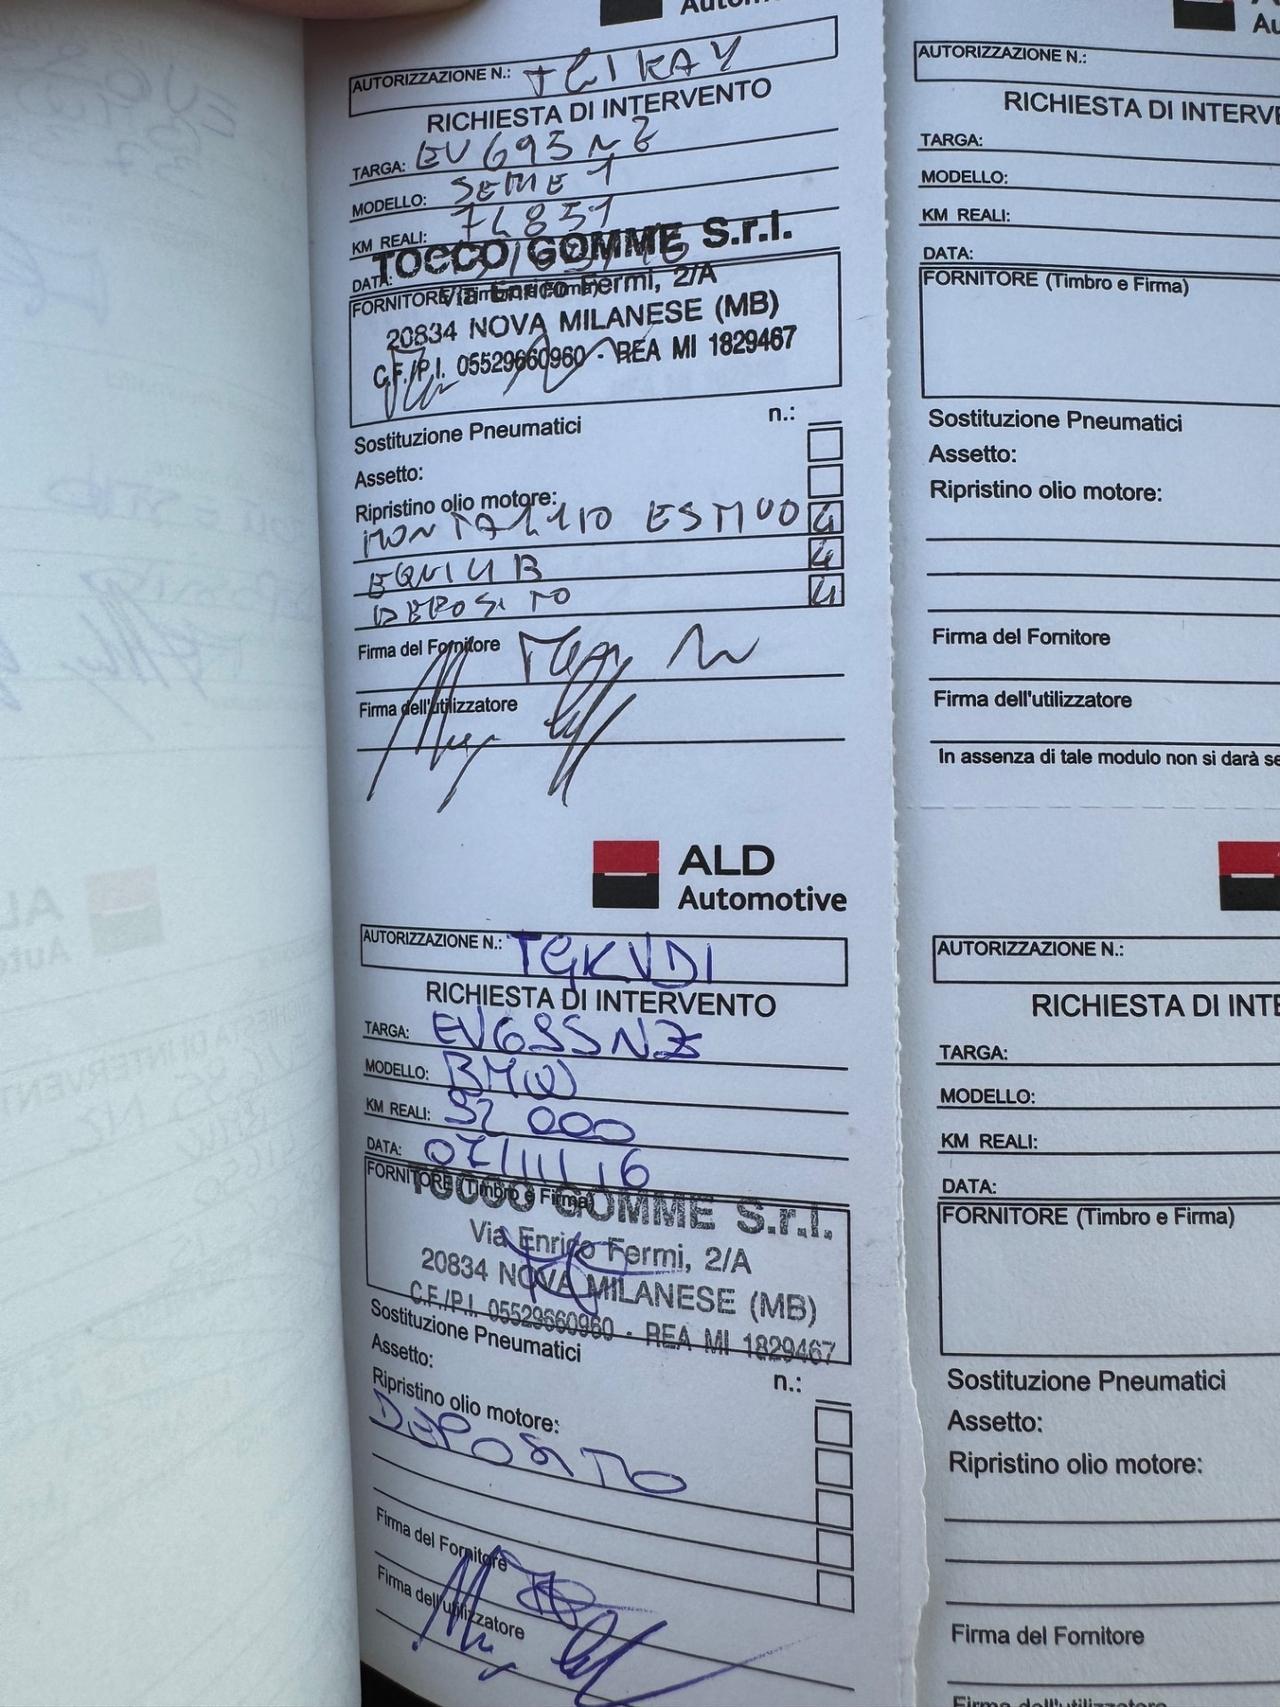 AUTORIZZAZIONE N.:
RICHIESTA DI INTERVENTO
TARGA: EV695NZ
MODELLO: SERIE 1
KM REALI: 74851
DATA:
TOCCO GOMME S.r.l.
FORNITORE (Timbro e Firma)
Via Enrico Fermi, 2/A
20834 NOVA MILANESE (MB)
C.F./P.I. 05529660960 - REA MI 1829467
n.:
Sostituzione Pneumatici
Assetto:
Ripristino olio motore:
MONTAGGIO ESTIVO 4
EQUILIB 4
DEPOSITO 4
Firma del Fornitore
Firma dell'utilizzatore
ALD
Automotive
AUTORIZZAZIONE N.: TGKVDI
RICHIESTA DI INTERVENTO
TARGA: EV695NZ
MODELLO: BMW
KM REALI: 92 000
DATA: 07/11/16
FORNITORE (Timbro e Firma)
TOCCO GOMME S.r.l.
Via Enrico Fermi, 2/A
20834 NOVA MILANESE (MB)
C.F./P.I. 05529660960 - REA MI 1829467
Sostituzione Pneumatici
n.:
Assetto:
Ripristino olio motore:
DEPOSITO
Firma del Fornitore
Firma dell'utilizzatore
AUTORIZZAZIONE N.:
TARGA:
MODELLO:
KM REALI:
DATA:
FORNITORE (Timbro e Firma)
Sostituzione Pneumatici
Assetto:
Ripristino olio motore:
Firma del Fornitore
Firma dell'utilizzatore
In assenza di tale modulo non si darà
AUTORIZZAZIONE N.:
RICHIESTA DI
TARGA:
MODELLO:
KM REALI:
DATA:
FORNITORE (Timbro e Firma)
Sostituzione Pneumatici
Assetto:
Ripristino olio motore:
Firma del Fornitore